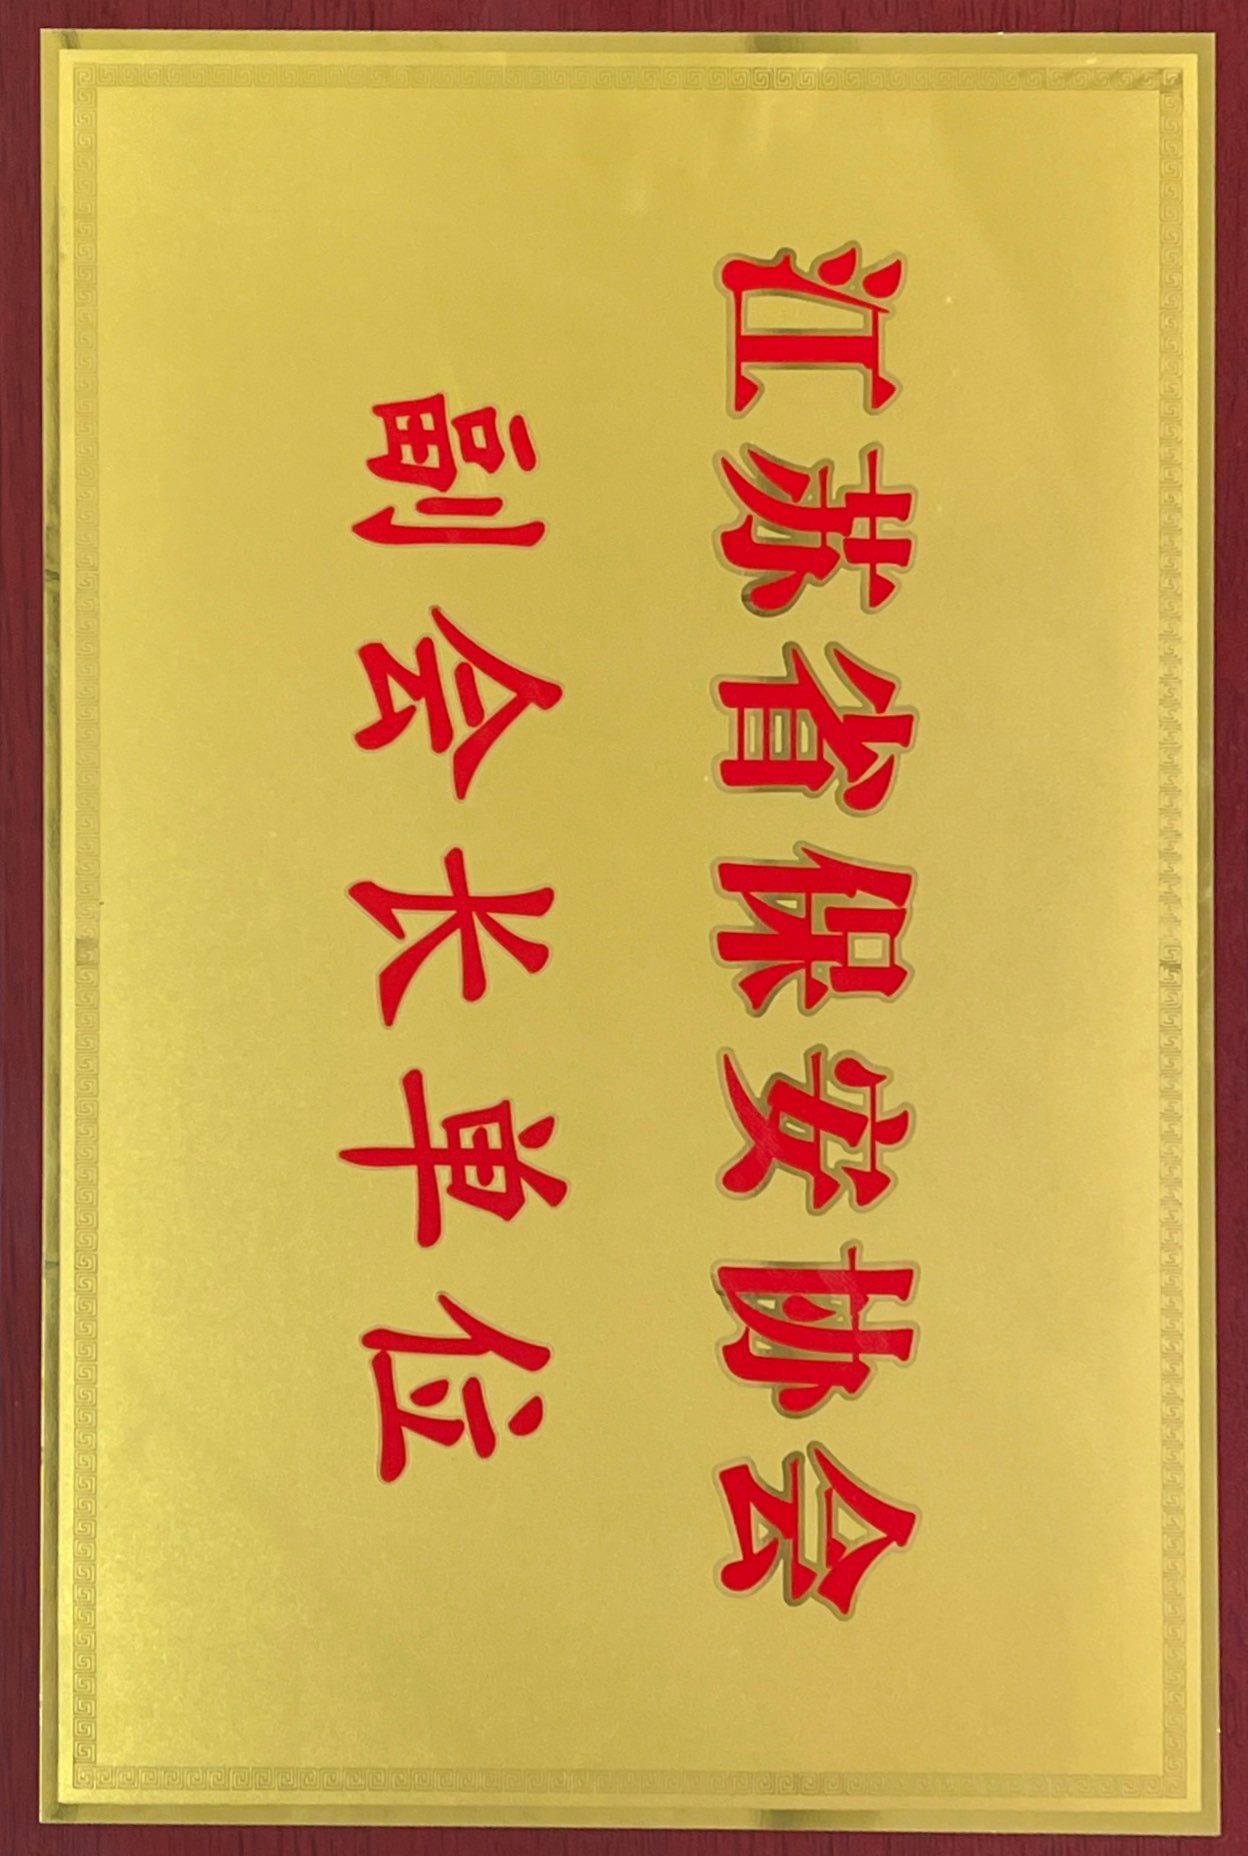 江苏省保安协会
副会长单位